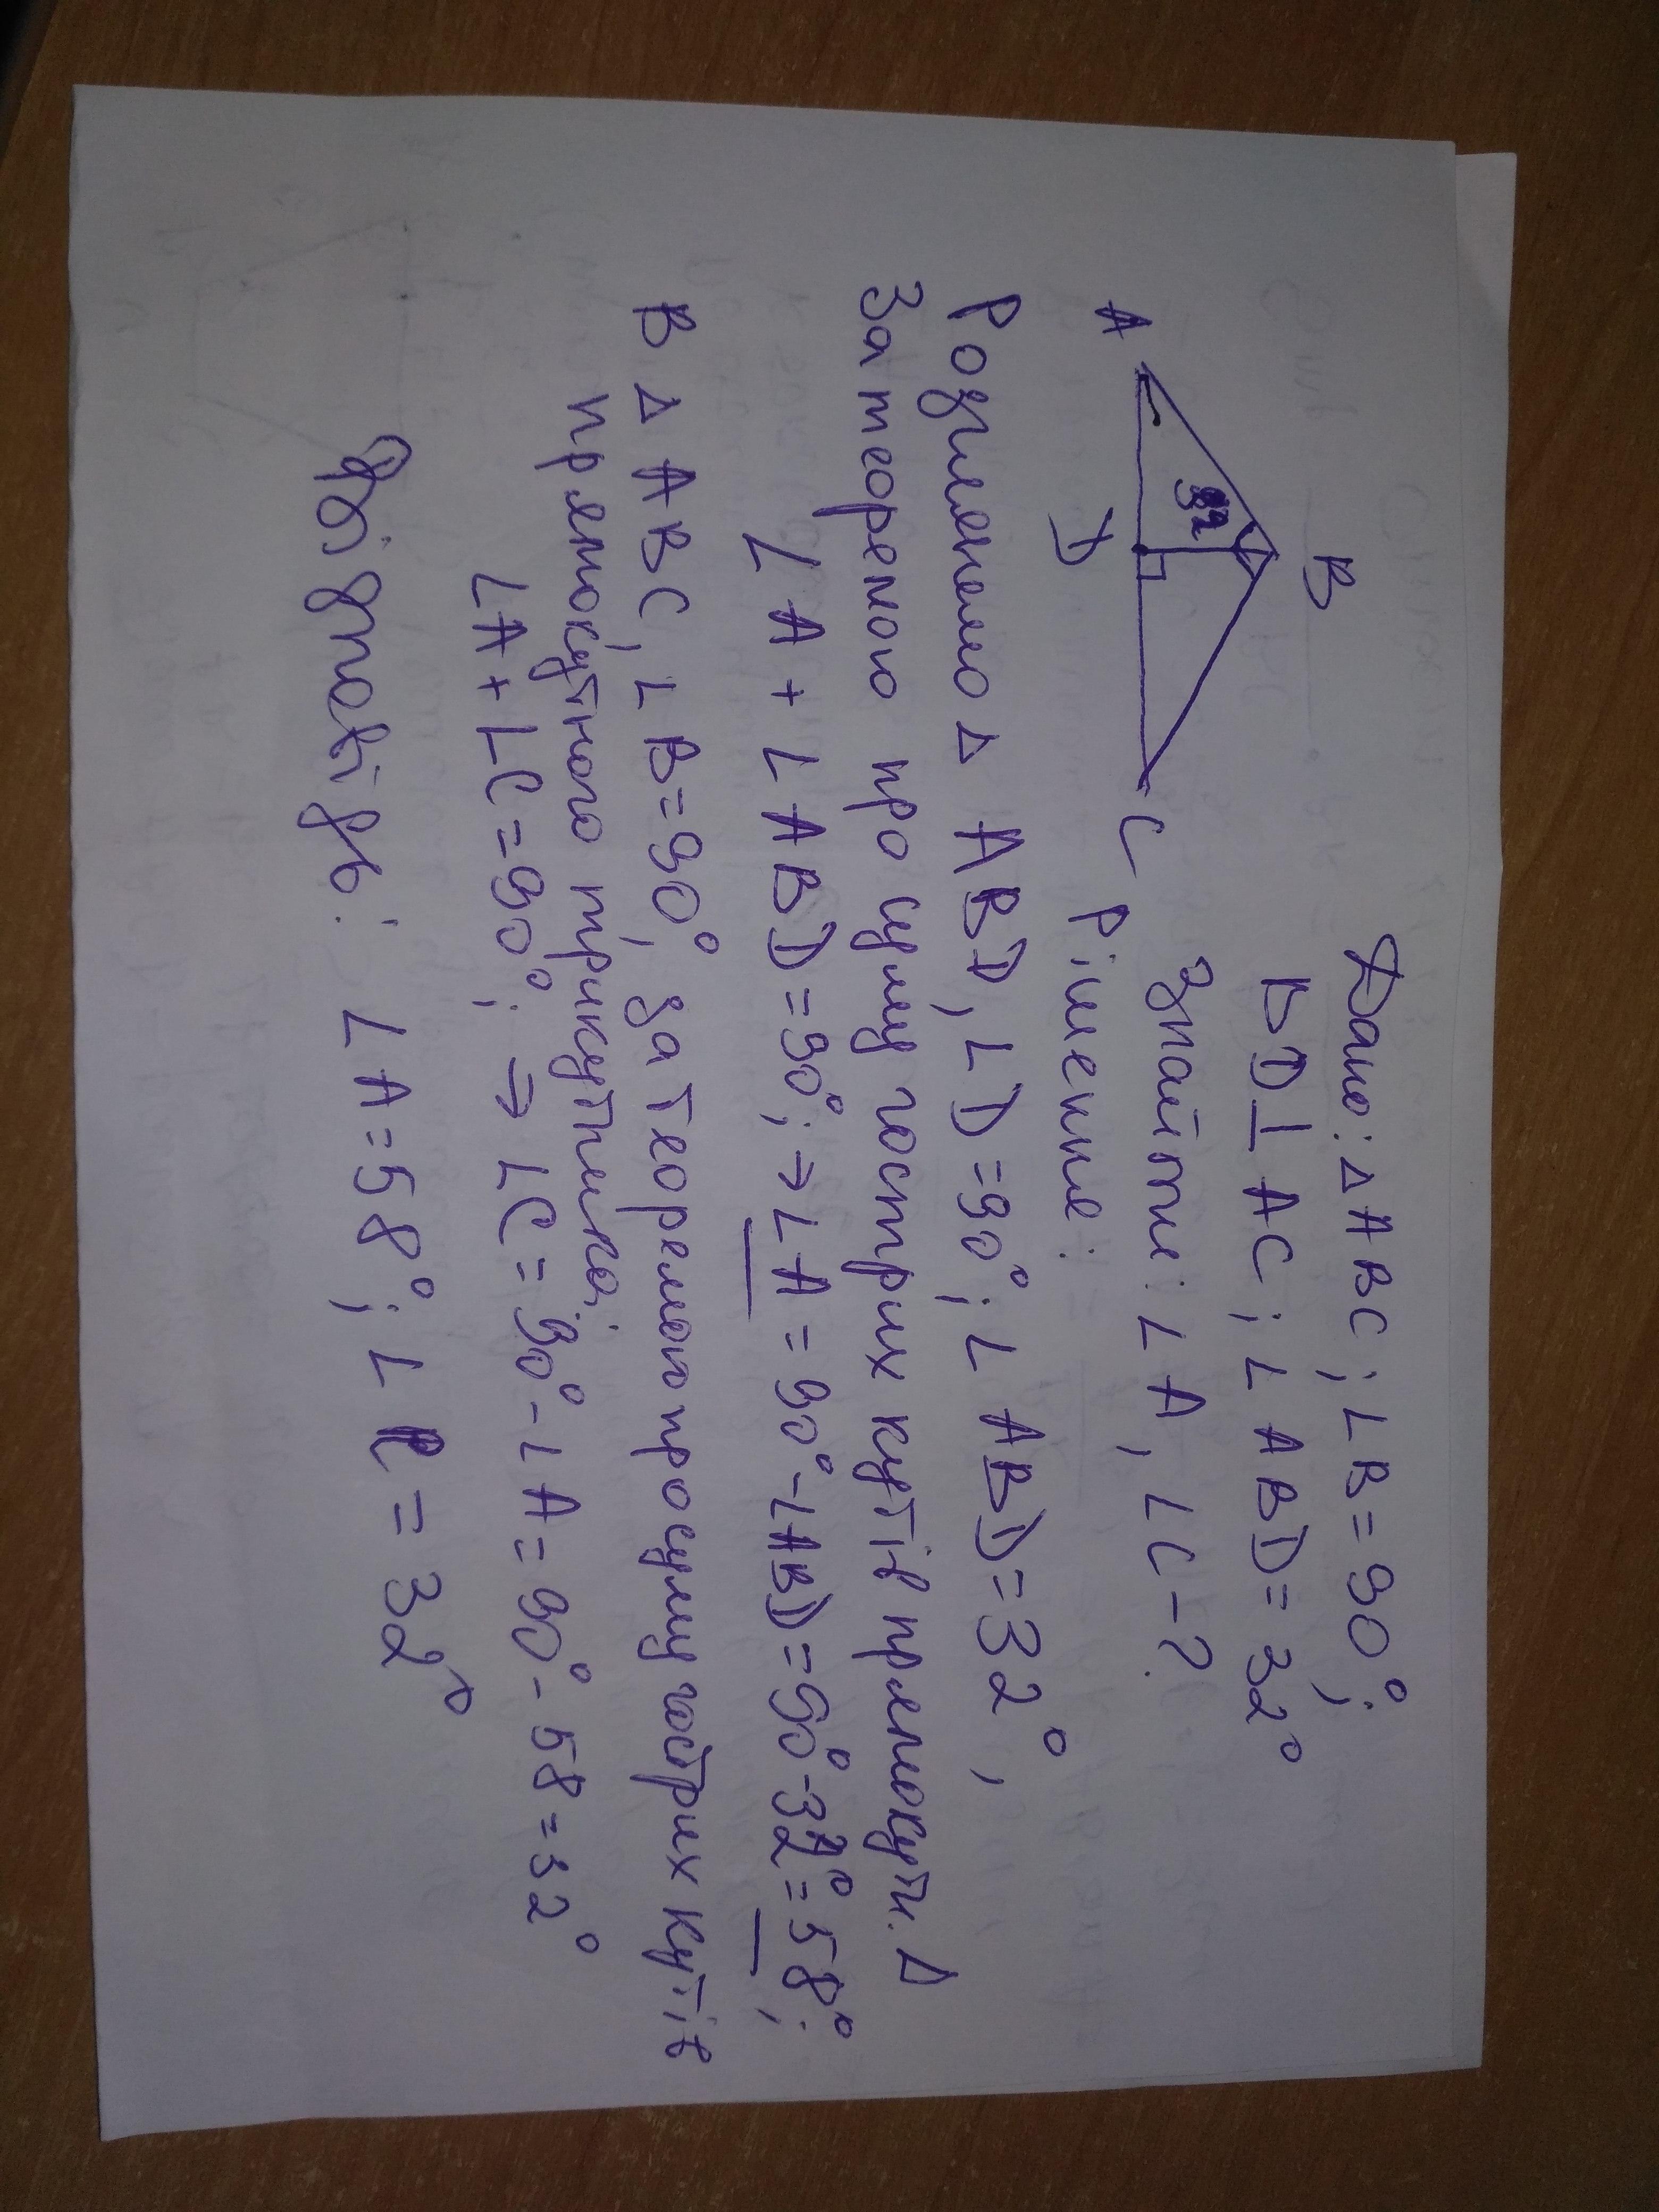 Дано: △ABC; ∠B=90°;
BD⊥AC; ∠ABD=32°
Знайти: ∠A, ∠C-?
B
32
A
D
C
Рішення:
Розглянемо △ ABD, ∠D=90°; ∠ABD=32°,
За теоремою про суму гострих кутів прямокутн. △
∠A + ∠ABD=90°; ⇒ ∠A = 90°-∠ABD=90°-32°=58°;
В △ ABC, ∠B=90°, за теоремою про суму гострих кутів
прямокутного трикутника;
∠A+∠C=90°; ⇒ ∠C=90°-∠A=90°-58=32°
Відповідь: ∠A=58°; ∠C=32°